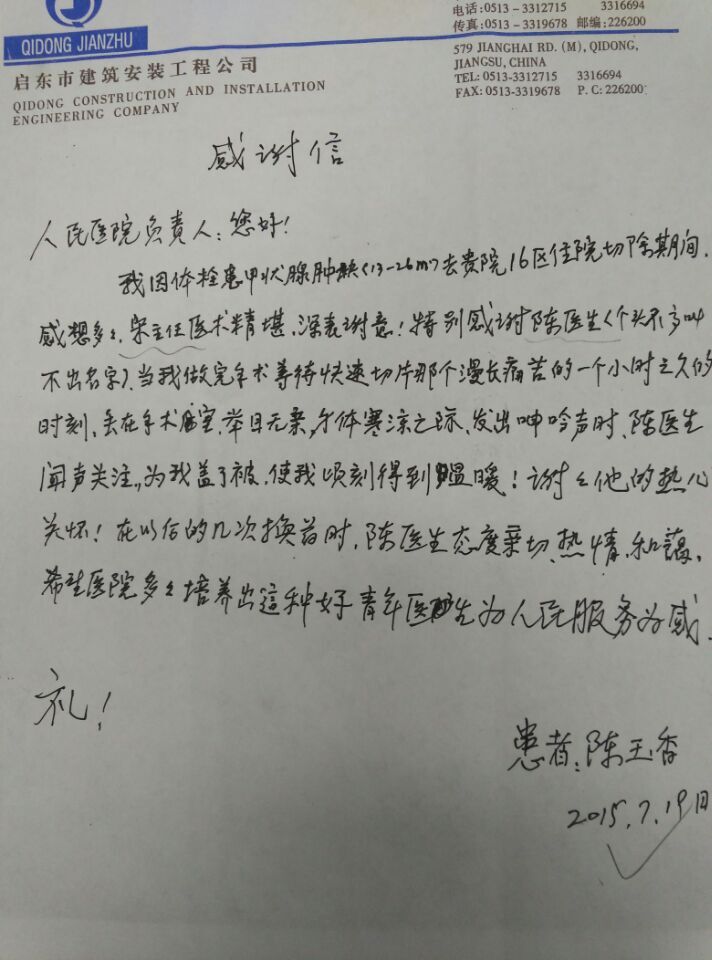 电话:0513-3312715 3316694
传真:0513-3319678 邮编:226200
579 JIANGHAI RD. (M), QIDONG,
JIANGSU, CHINA
TEL: 0513-3312715 3316694
FAX: 0513-3319678 P. C: 226200
QIDONG JIANZHU
启东市建筑安装工程公司
QIDONG CONSTRUCTION AND INSTALLATION
ENGINEERING COMPANY
感谢信
人民医院负责人:您好!
我因体检患甲状腺肿块(13-26m)去贵院16区住院切除期间.
感想多々,宋主任医术精堪,深表谢意!特别感谢陈医生(个头不高叫
不出名字).当我做完手术等待快速切片那个漫长痛苦的一个小时之久的
时刻,丢在手术室,举目无亲,身体寒凉之际,发出呻吟声时,陈医生
闻声关注,为我盖了被,使我顷刻得到温暖!谢々他的热心
关怀!在以后的几次换药时,陈医生态度亲切,热情,和蔼,
希望医院多々培养出這种好青年医生为人民服务为感.
礼!
患者:陈玉香
2015.7.19日